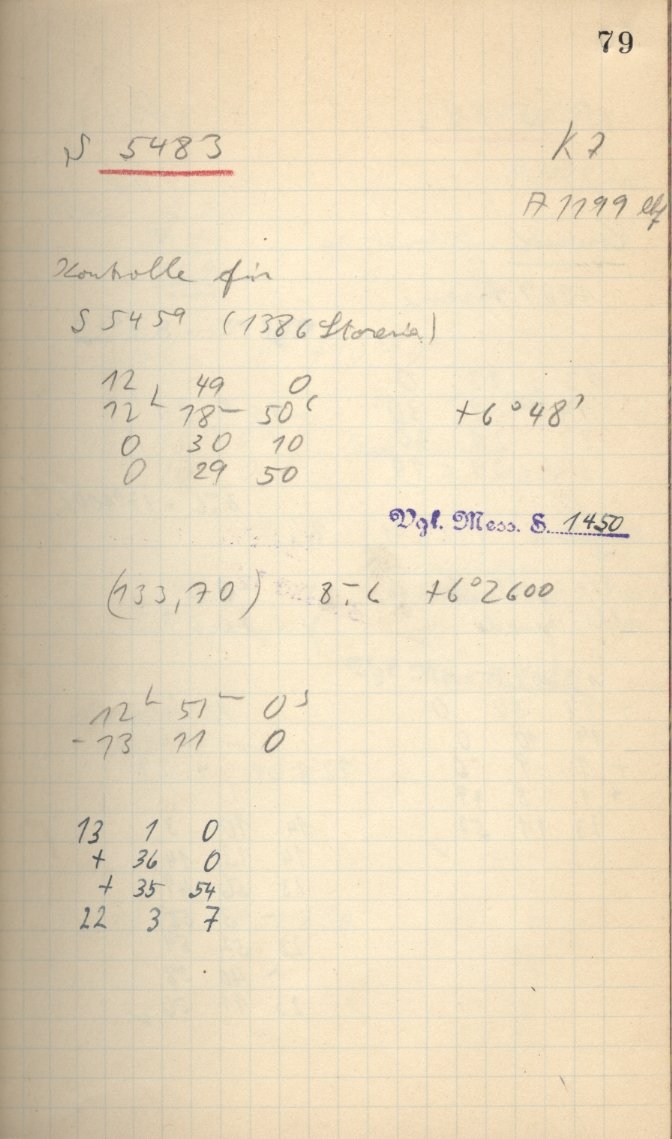 79
S 5483
K 7
A 1199
Kontrolle für
S 5459 (1386 Storeria)
12 49 0
12ʰ 18ᵐ 50ˢ +6°48'
0 30 10
0 29 50
Vgl. Mess. S. 1450
(133,70) 8ᵐ.6 +6°2600
12ʰ 51ᵐ 0ˢ
-13 11 0
13 1 0
+ 36 0
+ 35 54
22 3 7